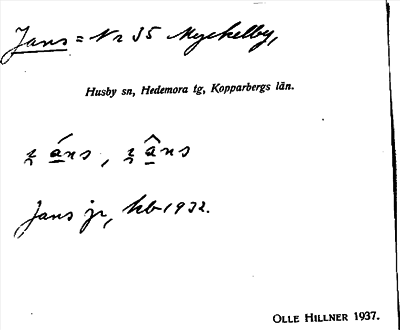 Jans = Nr 35 Myckelby,
Husby sn, Hedemora tg, Kopparbergs län.
áns, âns
Jans jr, kb 1932.
OLLE HILLNER 1937.